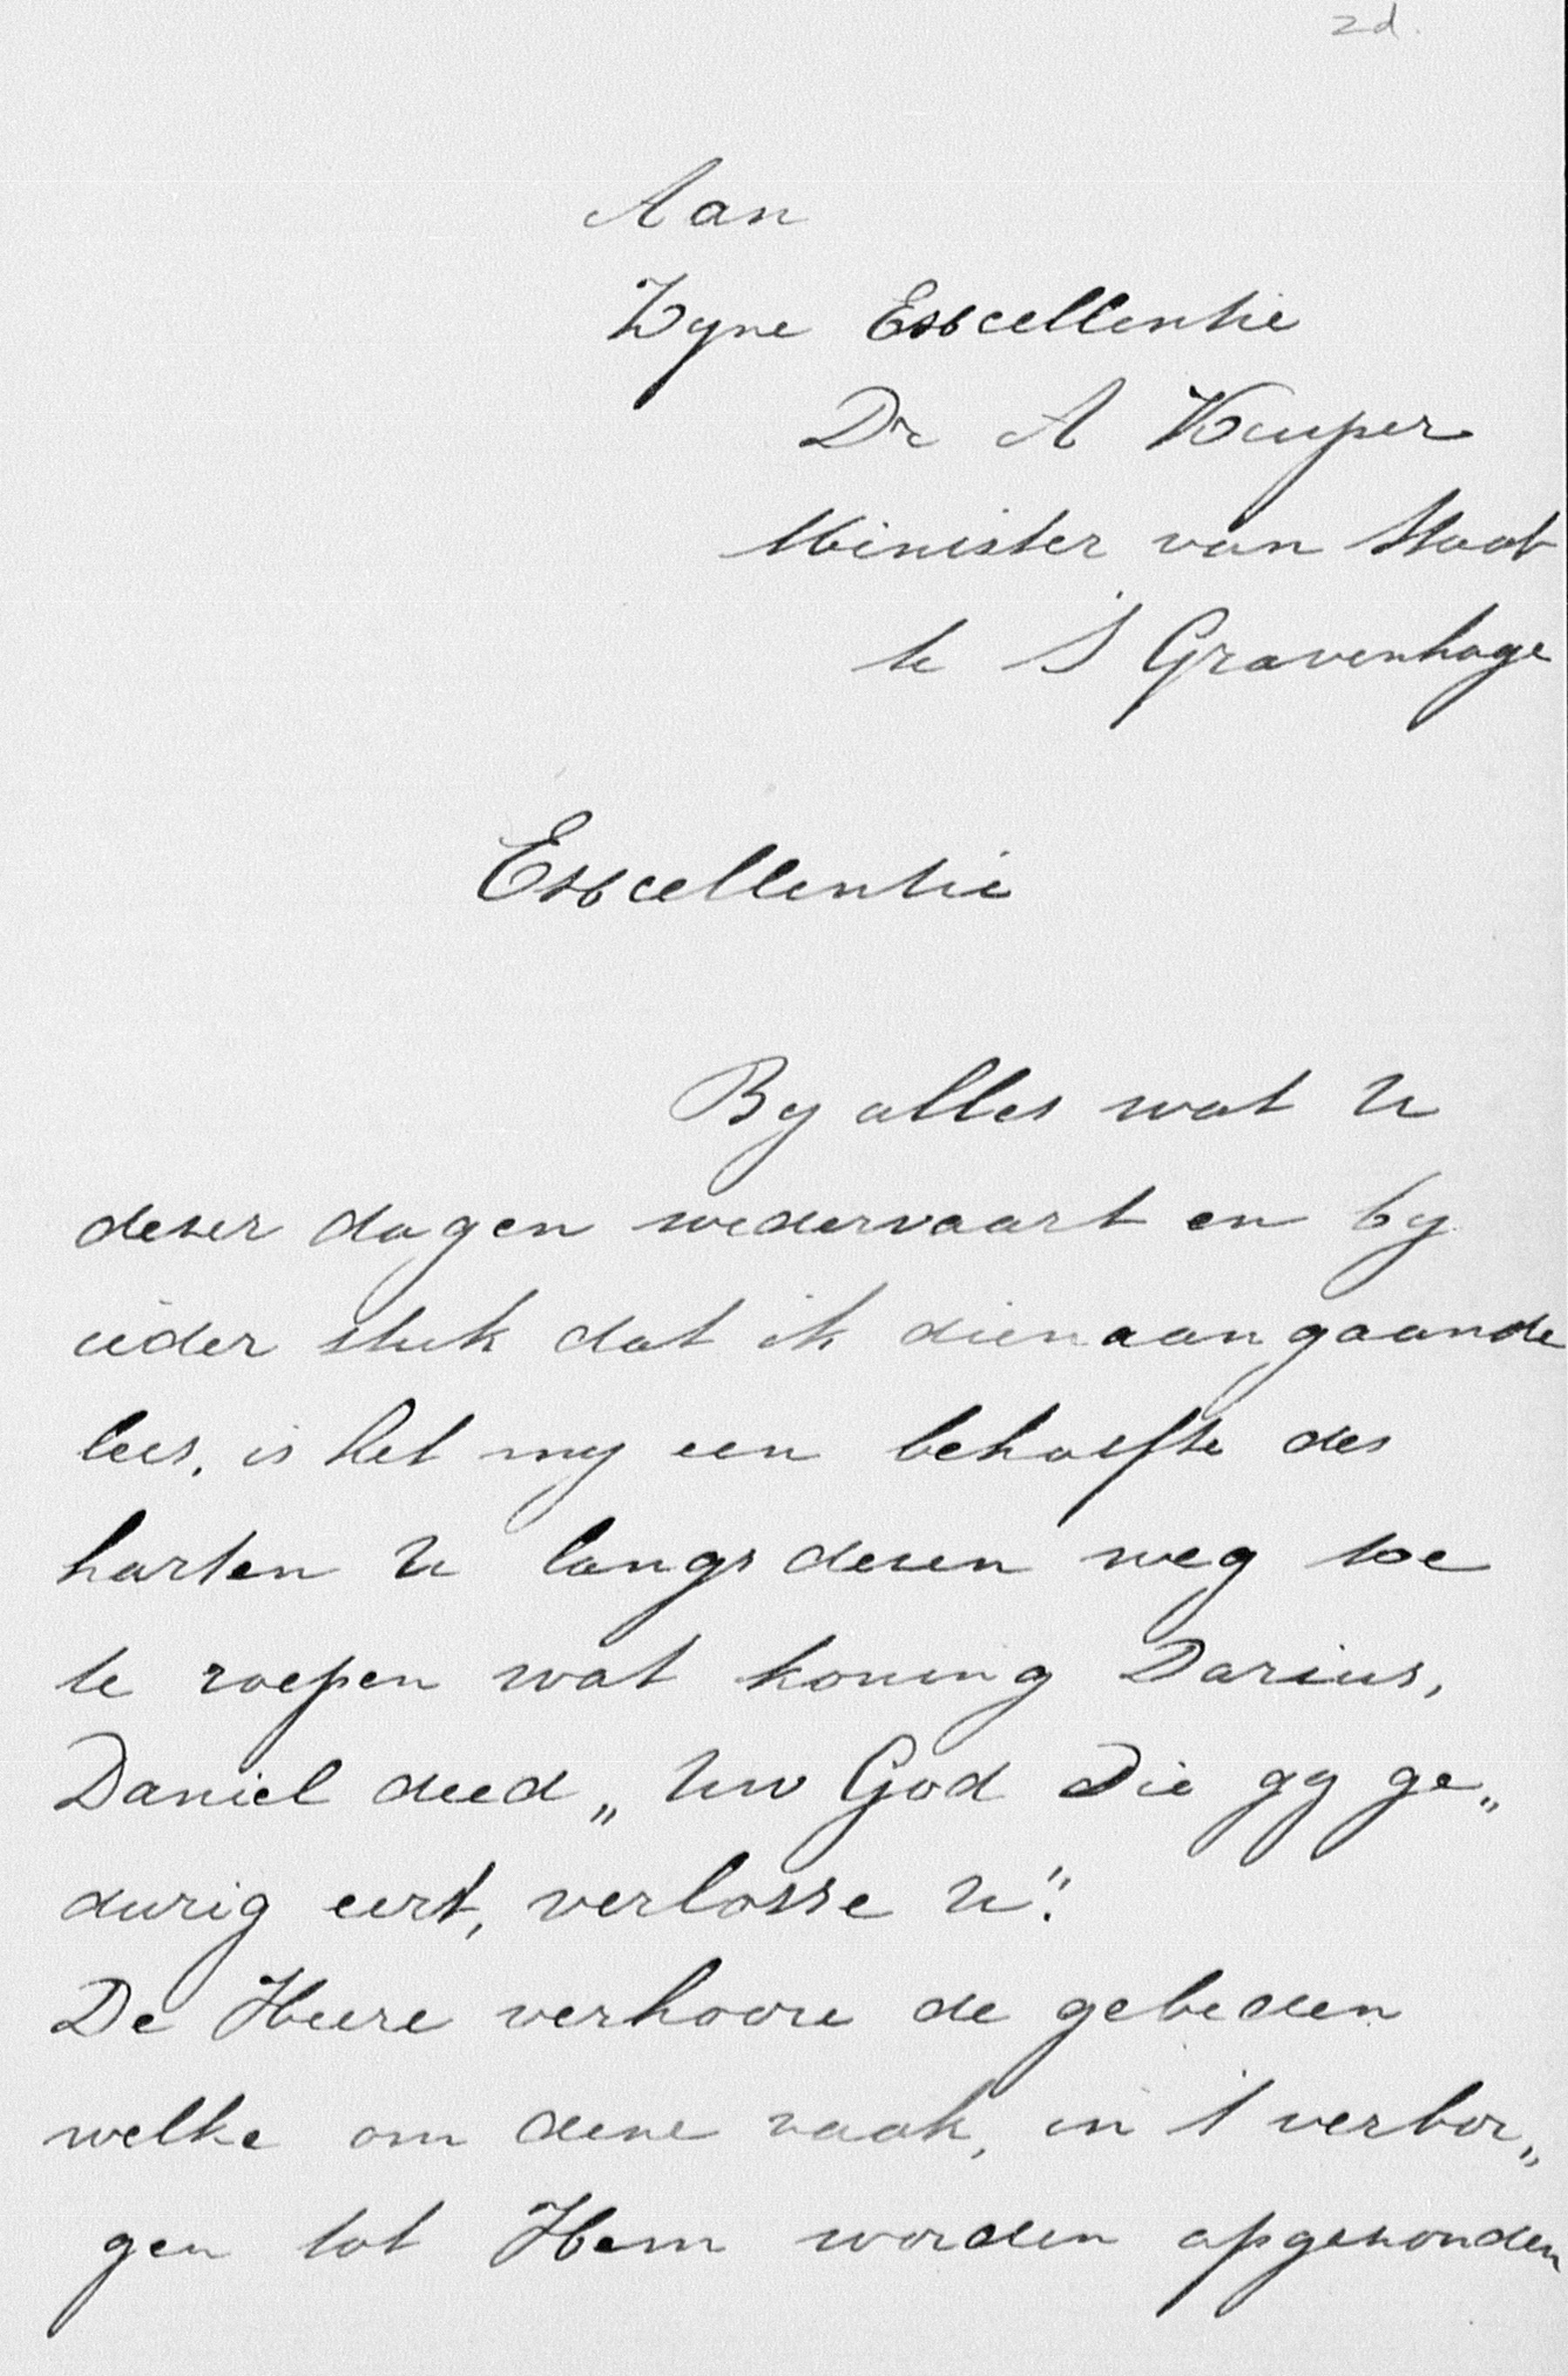 zd.
Aan
Zyne Excellentie
Dr A Kuyper
Minister van Staat
te 'S Gravenhage
Excellentie
By alles wat U
dezer dagen wedervaart en by
ieder stuk dat ik dienaangaande
lees, is het my een behoefte des
harten U langs dezen weg toe
te roepen wat koning Darius,
Daniel deed „Uw God Die gy ge„
durig eert, verlosse U".
De Heere verhoore de gebeden
welke om deze zaak, in 't verbor„
gen tot Hem worden opgezonden